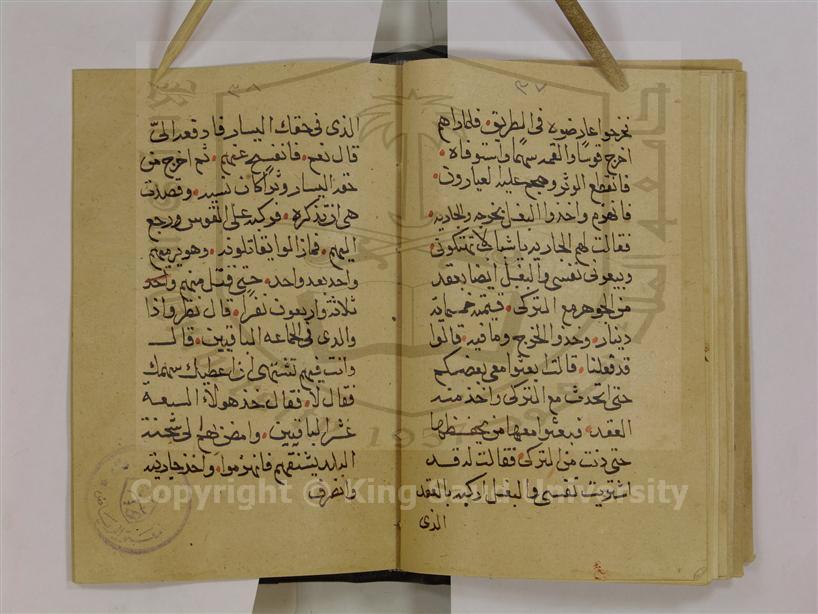 ٣٧
نخرجوا عارضوه في الطريق فلما راهم
اخرج قوسًا والقمه سهمًا واستوفاه
فانقطع الوتر وهجم عليه العيارون
فانهزم واخذوا البغل بخرجه والجاريه
فقالت لهم الجاريه يا شباب لا تهتكوني
وبيعوني نفسي والبغل ايضا بعقد
من الجوهر مع التركي قيمته خمسمايه
دينار وخذو الخرج وما فيه قالوا
قد فعلنا قالت ابعثوا معي بعضكم
حتى اتحدث مع التركي واخذ منه
العقد فبعثوا معها من يحفظها
حتى دنت من التركي فقالت له قد
اشتريت نفسي والبغل اركبه بالعقد
الذي
٣٨
الذي في خفك اليسار قاد فعه الىّ
قال نعم فانفسح عنهم ثم اخرج من
خفه اليسار وترًا كان نسيه وقصدت
هي ان تذكره فركبه على القوس ورجع
اليهم فما زالوا يقاتلونه وهو يرميهم
واحد بعد واحد حتى قتل منهم واحد
ثلاثة واربعون نفرًا قال نظر واذا
والدي في الجماعه الباقيين قال
وانت فيهم تشتهي ان اعطيك سهمك
فقال لا فقال خذ هولاء السبعة
عشر الباقيين وامض بهم الى شحنة
البلد يشنقهم فانهزموا واخذ جاريته
وانصرف
Copyright © King Saud University
جامعة الملك سعود
1957